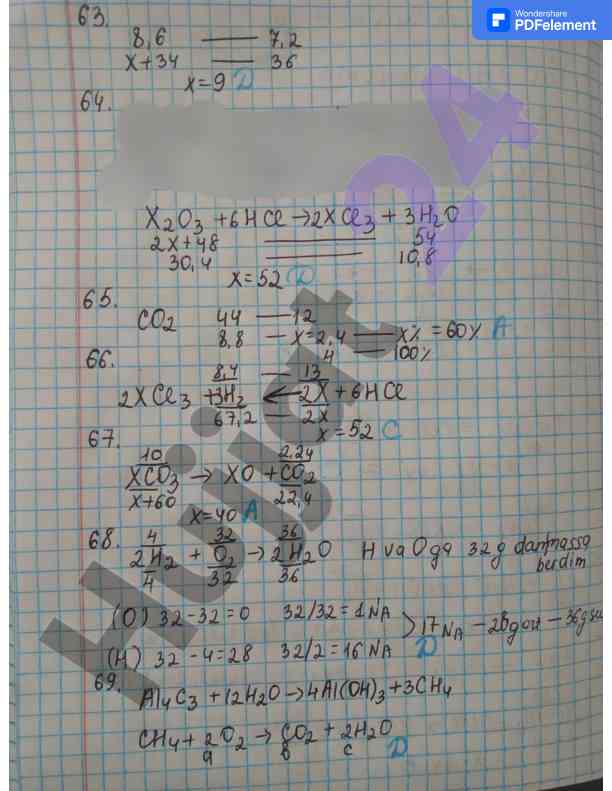 Wondershare
PDFelement
63.
8,6 — 7,2
x+34 — 36
x=9 D
64.
X₂O₃ +6HCl →2XCl₃ + 3H₂O
2X+48 — 54
30,4 — 10,8
x=52 D
65.
CO₂ 44 — 12
8,8 — x=2,4 — x% = 60% A
4 — 100%
66.
8,4 — 13
2XCl₃ +3H₂ ← 2X + 6HCl
67,2 — 2X
x=52 C
67.
10 2,24
XCO₃ → XO + CO₂
x+60 22,4
x=40 A
68.
4 32 36
2H₂ + O₂ → 2H₂O H va Oga 32g dan massa
4 32 36 berdim
(O) 32-32=0 32/32=1NA
>17NA -28gou -36gsu
(H) 32-4=28 32/2=16NA D
69.
Al₄C₃ +12H₂O→4Al(OH)₃+3CH₄
CH₄+2O₂ → CO₂ + 2H₂O
a b c D
Hujjat 24